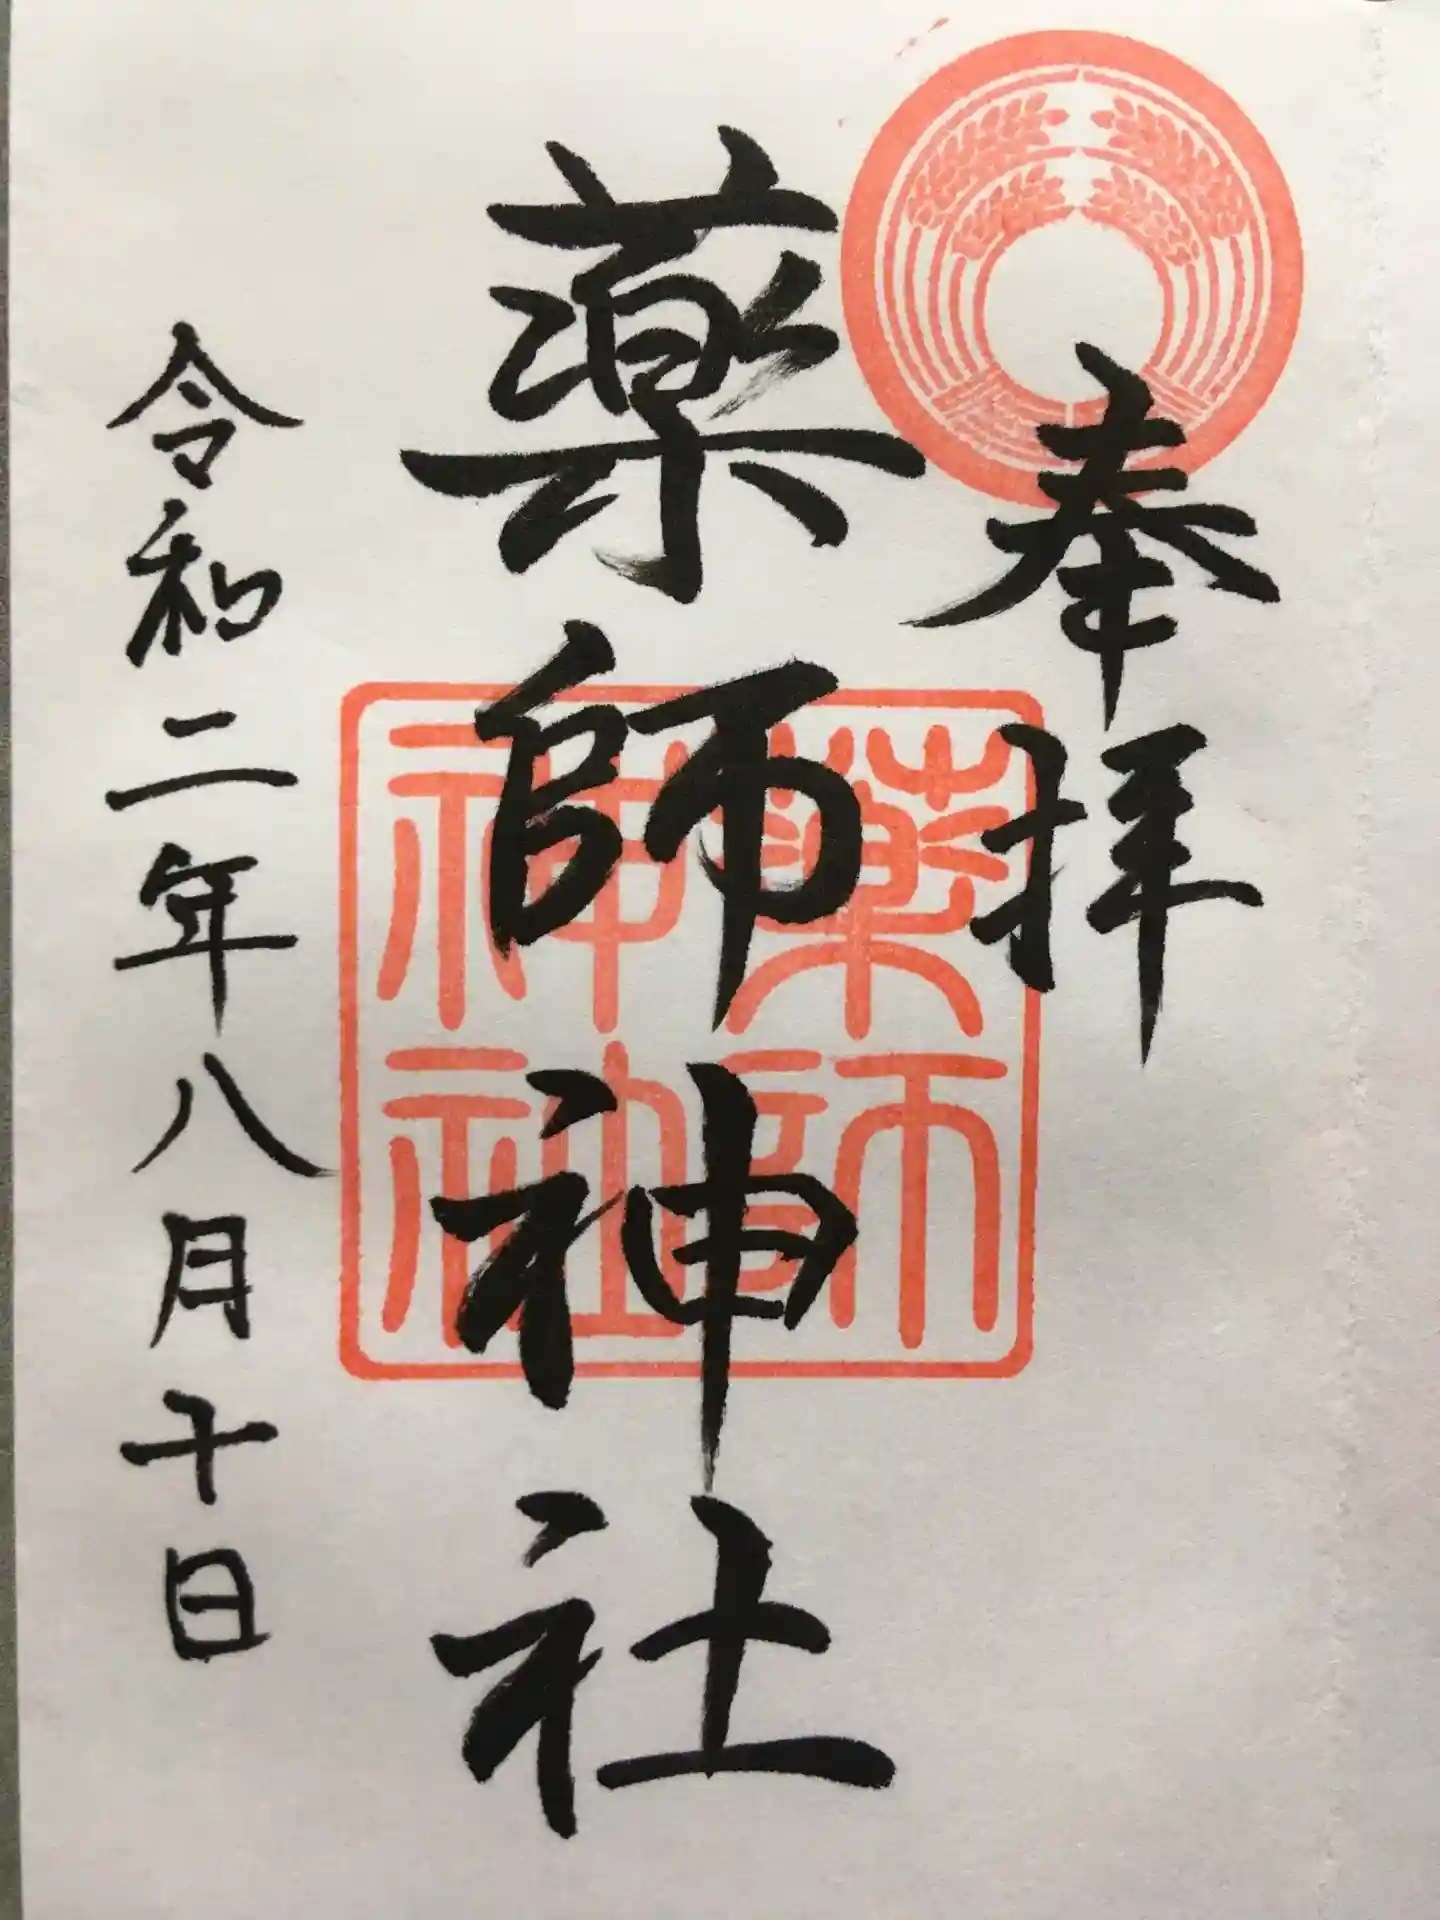 奉拝
薬師神社
薬師
神社
令和二年八月十日